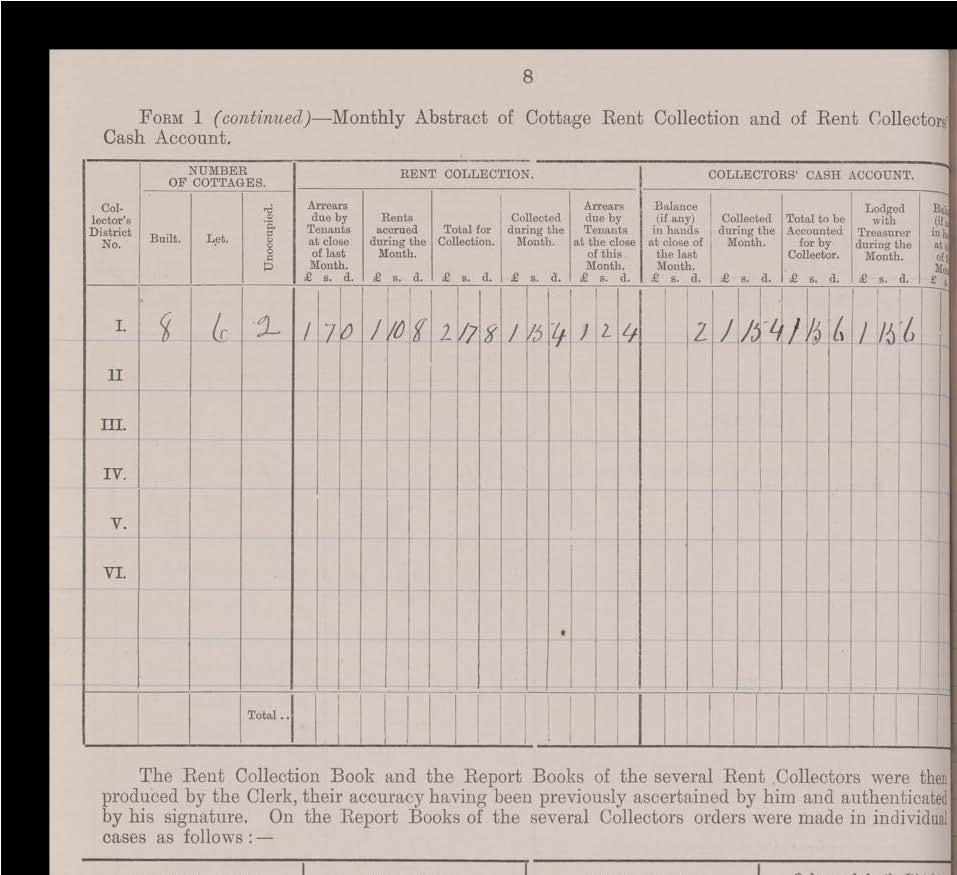 8
FORM 1 (continued)—Monthly Abstract of Cottage Rent Collection and of Rent Collectors'
Cash Account.
NUMBER OF COTTAGES.
RENT COLLECTION.
COLLECTORS' CASH ACCOUNT.
Col-
lector's
District
No.
Built.
Let.
Unoccupied.
Arrears
due by
Tenants
at close
of last
Month.
£ s. d.
Rents
accrued
during the
Month.
£ s. d.
Total for
Collection.
£ s. d.
Collected
during the
Month.
£ s. d.
Arrears
due by
Tenants
at the close
of this
Month.
£ s. d.
Balance
(if any)
in hands
at close of
the last
Month.
£ s. d.
Collected
during the
Month.
£ s. d.
Total to be
Accounted
for by
Collector.
£ s. d.
Lodged
with
Treasurer
during the
Month.
£ s. d.
I. 8 6 2 1 7 0 1 10 8 2 17 8 1 15 4 1 2 4 2 1 15 4 1 15 6 1 15 6
II
III.
IV.
V.
VI.
Total ..
The Rent Collection Book and the Report Books of the several Rent Collectors were then
produced by the Clerk, their accuracy having been previously ascertained by him and authenticated
by his signature. On the Report Books of the several Collectors orders were made in individual
cases as follows :—